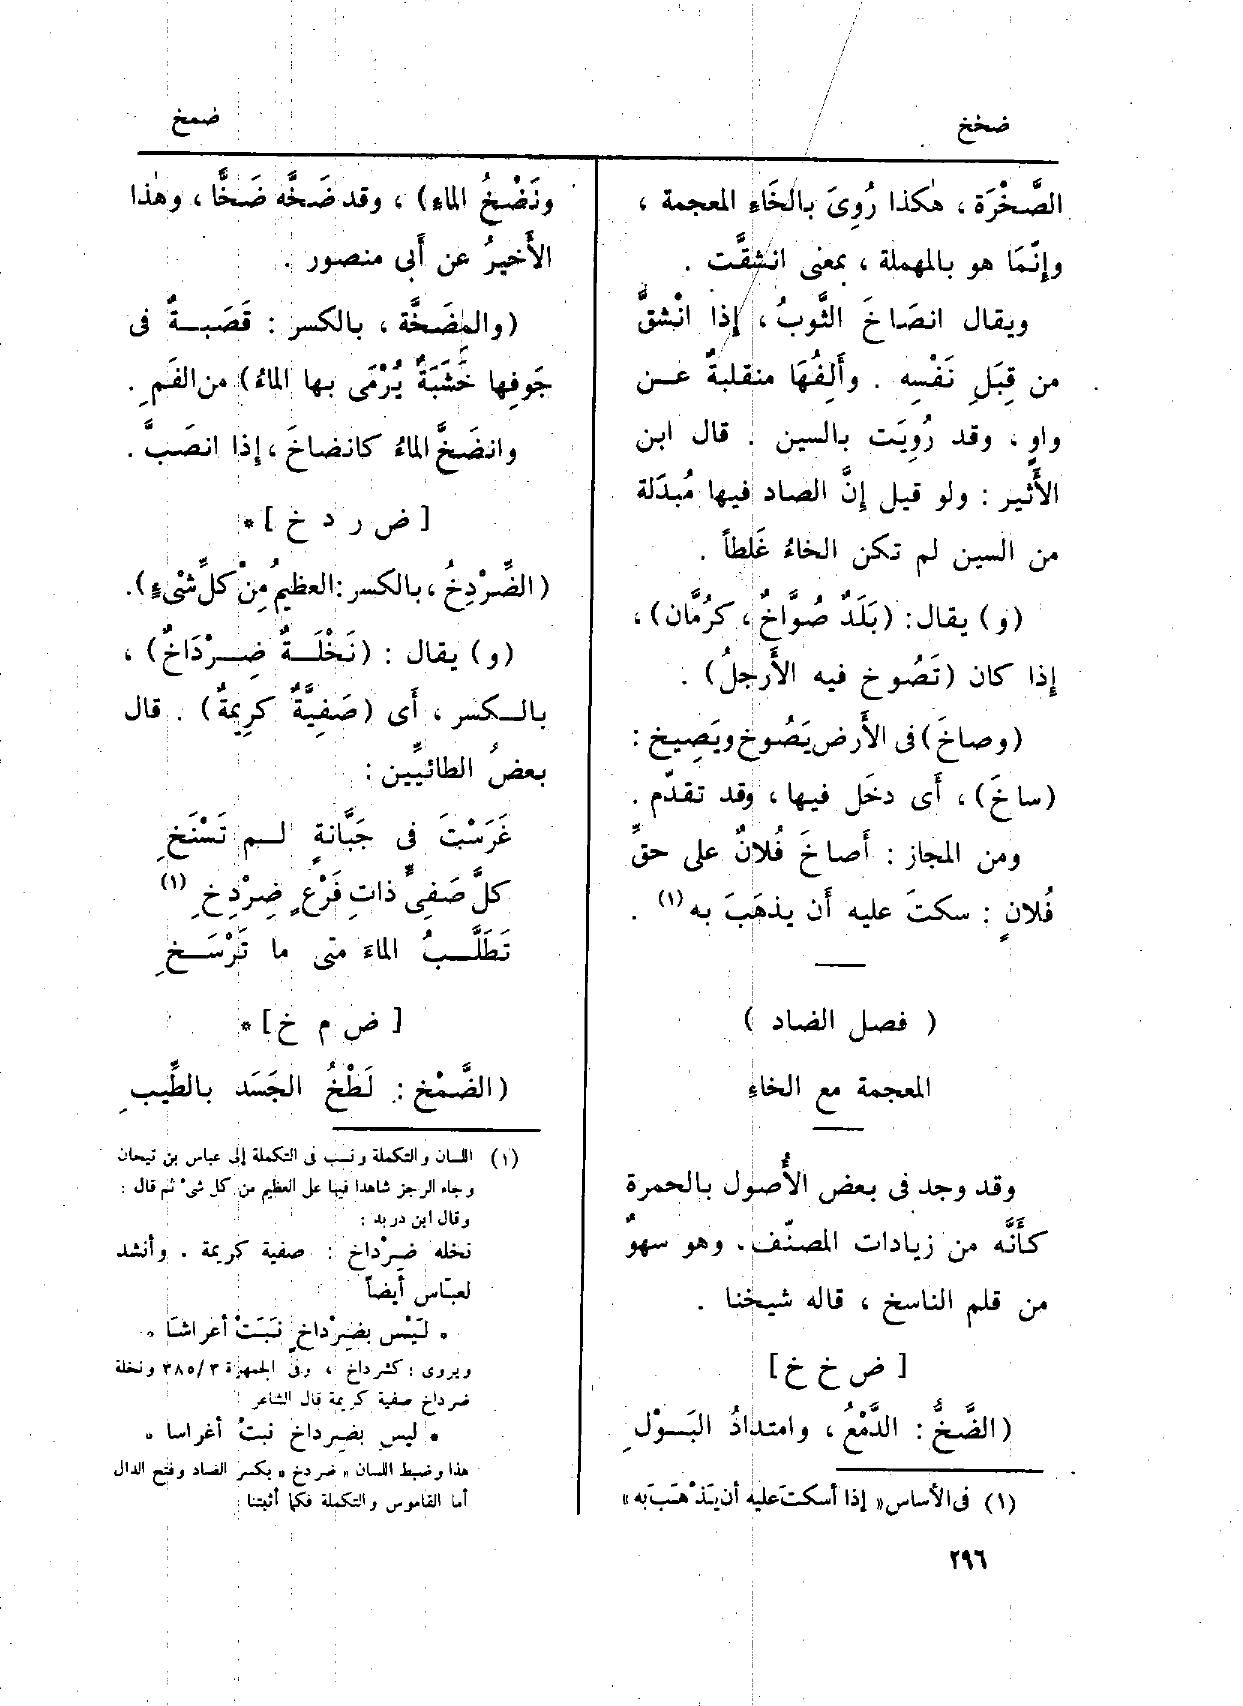 ضخخ
ضمخ
الصَّخْرَة ، هٰكذا رُوِىَ بالخَاءِ المعجمة ،
وإنّمَا هو بالمهملة ، بمعنى انشقَّت .
ويقال انصَاخَ الثَّوبُ ، إذا انْشقَّ
من قِبَلِ نَفْسِه . وأَلِفُهَا منقلبةٌ عـن
واوٍ ، وقد رُوِيَت بالسين . قال ابن
الأَثير : ولو قيل إنَّ الصاد فيها مُبدَلة
من السين لم تكن الخاءُ غَلطاً .
(و) يقال : (بَلَدٌ صُوَّاخٌ ، كرُمَّان) ،
إذا كان (تَصُوخ فيه الأَرجلُ) .
(وصاخَ) فى الأَرض يَصُوخ ويَصِيخ :
(ساخَ) ، أَى دخَل فيها ، وقد تقدّم .
ومن المجاز : أَصاخَ فُلانٌ على حقِّ
فُلانٍ : سكتَ عليه أَن يذهَبَ به (١) .
( فصل الضاد )
المعجمة مع الخاءِ
وقد وجد فى بعض الأُصول بالحمرة
كأَنَّه من زيادات المصنّف . وهو سهوٌ
من قلم الناسخ ، قاله شيخنا .
[ ض خ خ ]
(الضَّخُّ : الدَّمْعُ ، وامتدادُ البَـوْلِ
(١) فى الأساس « إذا أسكتَ عليه أن يَذْهَبَ به »
ونَضْخُ الماءِ) ، وقد ضَخَّه ضَخًّا ، وهٰذا
الأَخيرُ عن أَبى منصور .
(والمِضَخَّة ، بالكسر : قَصَبـةٌ فى
جَوفِها خَشَبَةٌ يُرْمَى بها الماءُ) من الفَمِ .
وانضَخَّ الماءُ كانضاخَ ، إذا انصَبَّ .
[ ض ر د خ ] *
(الضِّرْدِخُ ، بالكسر : العظيمُ مِنْ كلِّ شىْءٍ) .
(و) يقال : (نَخْلَـةٌ ضِـرْدَاخٌ) ،
بالـكسر ، أَى (صَفِيَّةٌ كرِيمةٌ) . قال
بعضُ الطائيِّين :
غَرَسْتَ فى جَبَّانةٍ لـم تَسْنَخِ
كلَّ صَفِىٍّ ذاتِ فَرْعٍ ضِرْدِخِ (١)
تَطَلَّـبُ الماءَ متى ما تَرْسَـخِ
[ ض م خ ] *
(الضَّمْخ : لَطْخُ الجَسَد بالطِّيبِ
(١) اللسان والتكملة ونسب فى التكملة إلى عباس بن تيحان
وجاء الرجز شاهدا فيها على العظيم من كل شىْ ثم قال :
وقال ابن دريد :
نخله ضِرْداخ : صفية كريمة . وأنشد
لعبّاس أيضاً
• لَيْس بضِرْداخٍ نَبَتْ أعراشَا •
ويروى : كشرداخ ، وفى الجمهرة ٣/ ٣٨٥ ونخلة
ضرداخ صفية كريمة قال الشاعر
• ليس بضرداخ نبتْ أغراسا •
هذا وضبط اللسان « ضردخ » بكسر الضاد وفتح الدال
أما القاموس والتكملة فكما أثبتنا
٢٩٦